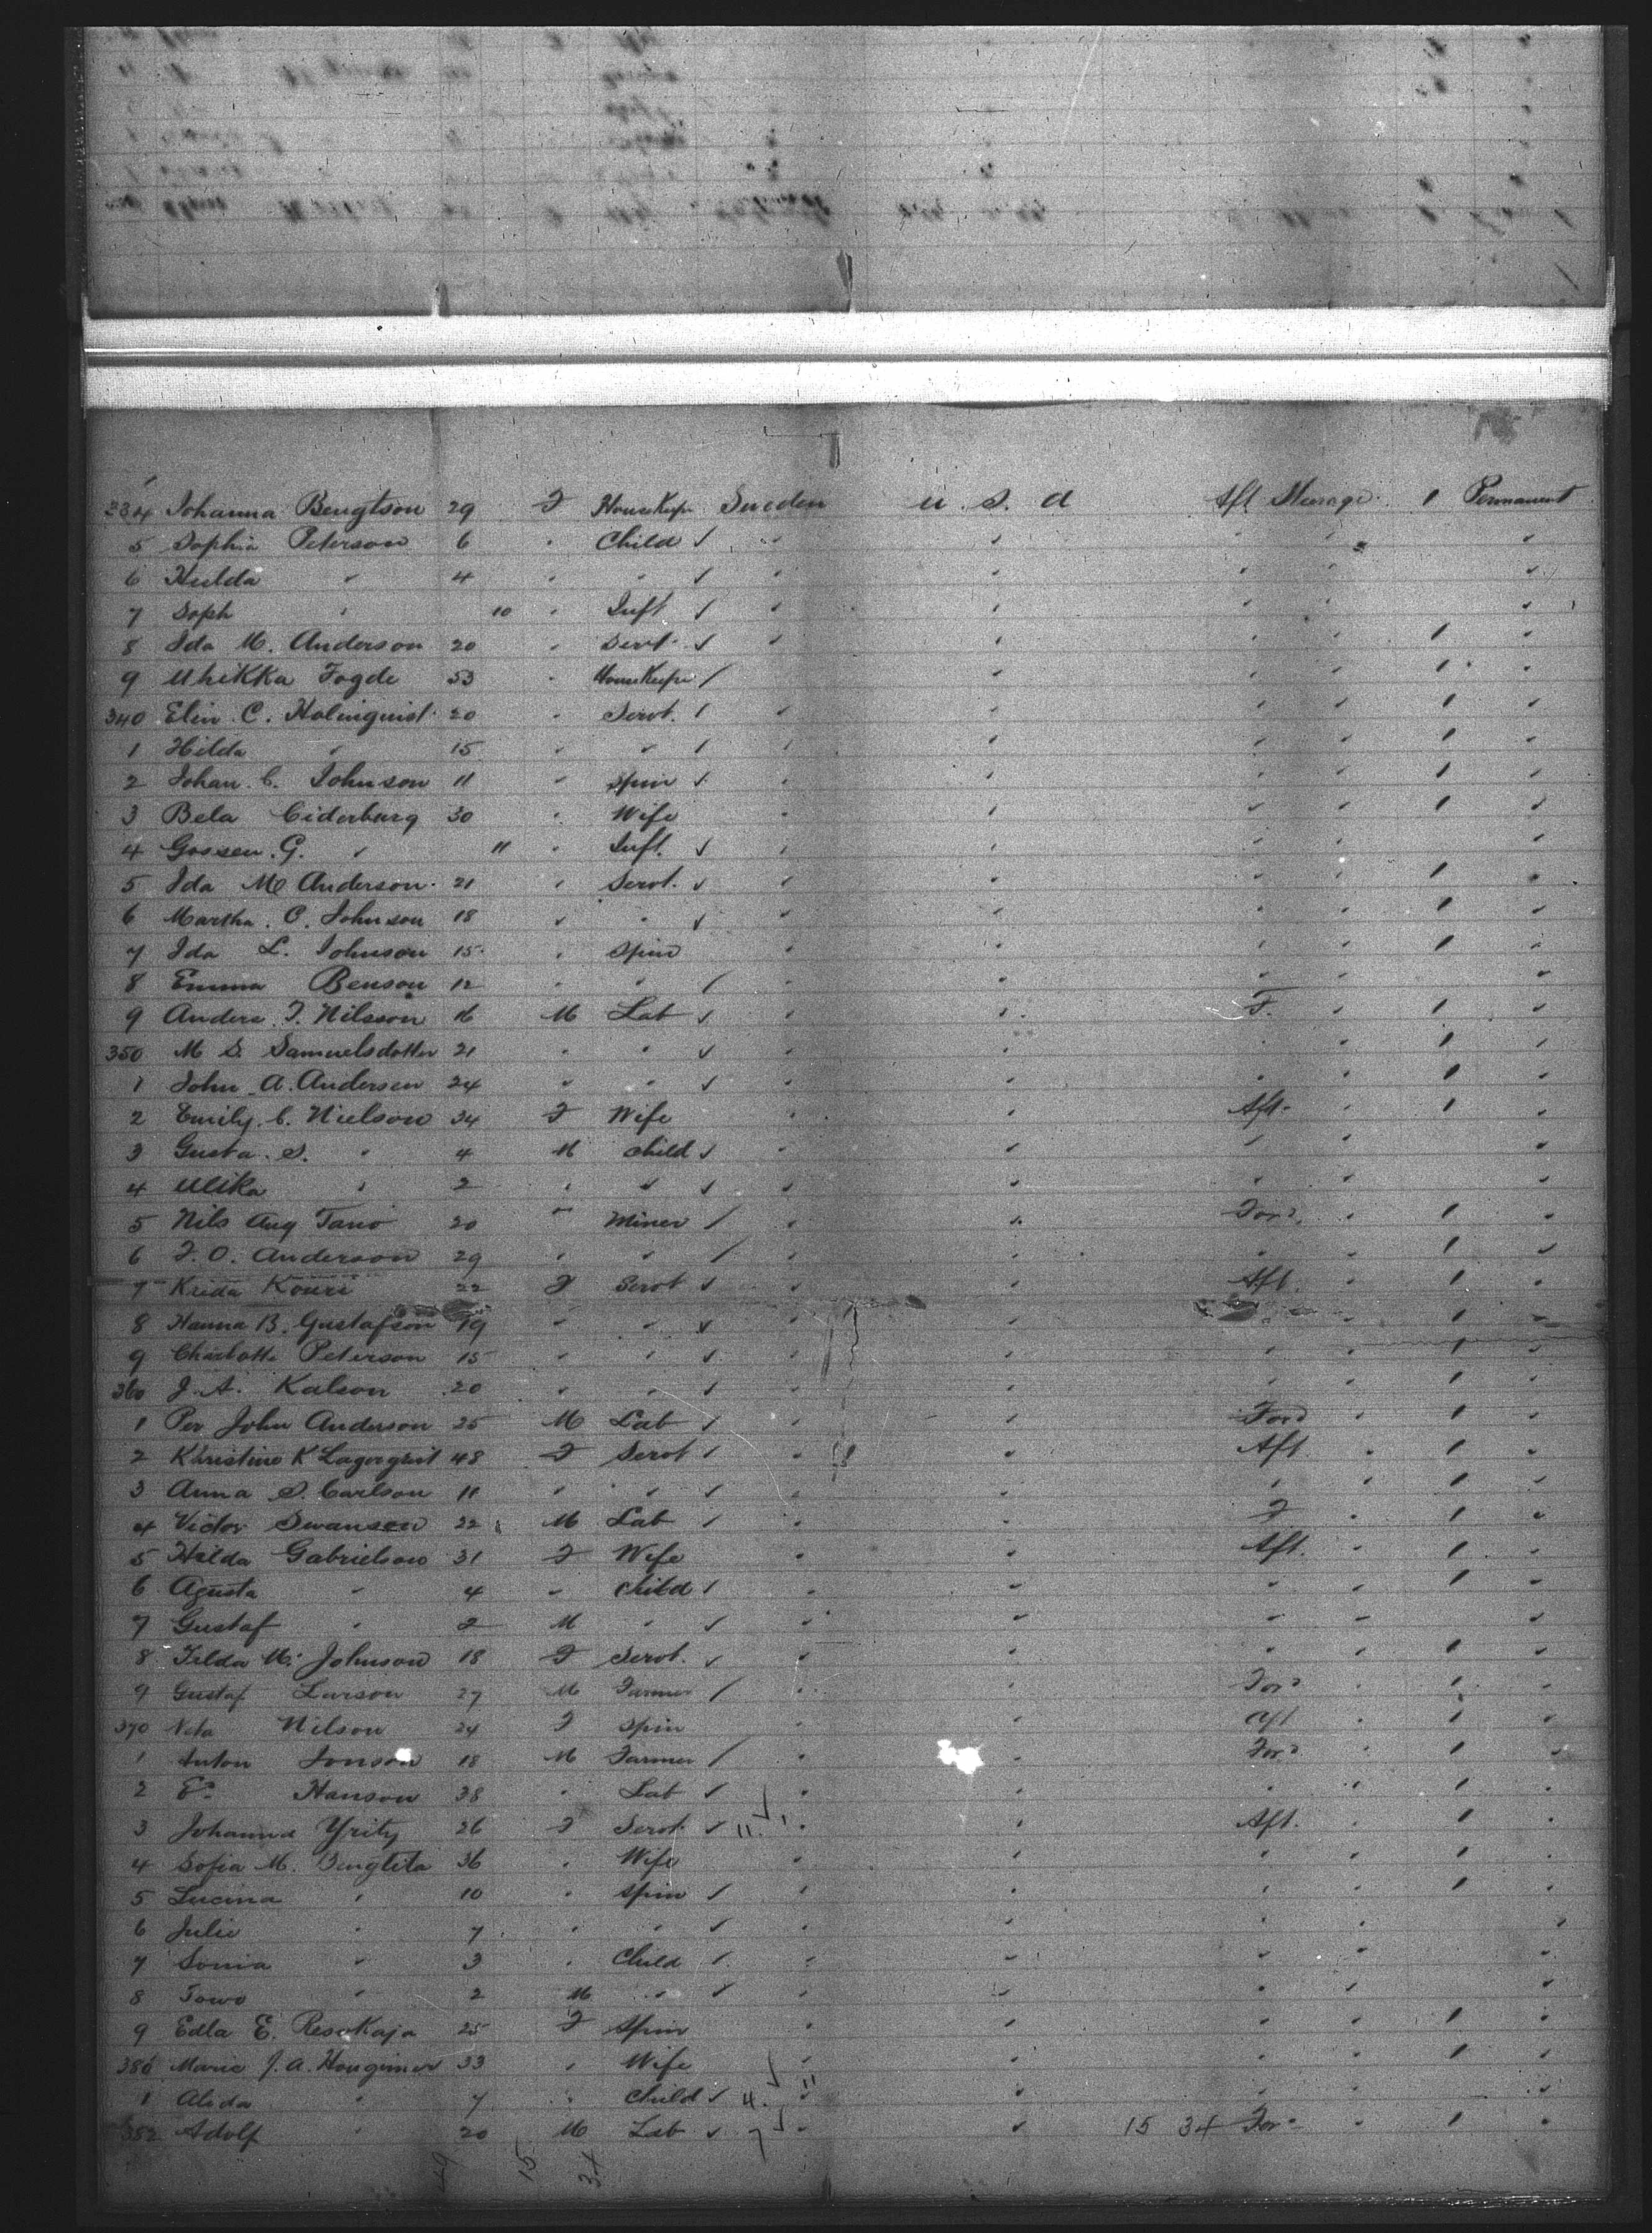 334 Johanna Bengtson 29 F HouseKeepr Sweden U. S. A Aft Steerage 1 Permanent
5 Sophia Peterson 6 " Child ✓ " " " " "
6 Hulda " 4 " " ✓ " " " " "
7 Soph " 10 " Inft ✓ " " " " "
8 Ida M. Anderson 20 " Servt. ✓ " " " " 1 "
9 Fogde 53 " HouseKeepr / " " " 1 "
340 Elin C. Holmquist 20 " Servt. / " " " " 1 "
1 Hilda " 15 " " / " " " " 1 "
2 Johan C. Johnson 11 " Spin ✓ " " " " 1 "
3 Bela Ciderburg 30 " Wife " " " " 1 "
4 Gossen G. " 11 " Inft. ✓ " " " " "
5 Ida M Anderson 21 " Servt. ✓ " " " " 1 "
6 Martha C. Johnson 18 " " ✓ " " " " 1 "
7 Ida L. Johnson 15 " Spin " " " " 1 "
8 Emma Benson 12 " " / " " " " "
9 Anders J. Nilsson 16 M Lab ✓ " " F. " 1 "
350 M S. Samuelsdotter 21 " " ✓ " " " " 1 "
1 John A. Andersen 24 " " ✓ " " " " 1 "
2 Emily C. Nielson 34 F Wife " " Aft. " 1 "
3 Gusta S. " 4 M Child ✓ " " " " "
4 Ulika " 2 " " ✓ " " " " "
5 Nils Aug Tano 20 " Miner / " " Ford. " 1 "
6 F. O. Anderson 29 " " / " " " " 1 "
7 Krida Kouri 22 F Servt ✓ " " Aft. " 1 "
8 Hanna B. Gustafson 19 " " ✓ " " " 1 "
9 Charlotte Peterson 15 " " ✓ " " " " 1 "
360 J. A. Kalson 20 " " ✓ " " " " 1 "
1 Per John Anderson 25 M Lab / " " Ford " 1 "
2 Khristine K 48 F Servt / " " Aft. " 1 "
3 Anna S. Carlson 11 " " ✓ " " " " 1 "
4 Victor Swansen 22 M Lab / " " F " 1 "
5 Hilda Gabrielson 31 F Wife " " Aft. " 1 "
6 Agusta " 4 " Child / " " " " 1 "
7 Gustaf " 2 M " ✓ " " " " "
8 Tilda M. Johnson 18 F Servt. ✓ " " " " 1 "
9 Gustaf Larson 27 M Farmer / " " Ford " 1 "
370 Neta Nilson 24 F Spin " " Aft " 1 "
1 Anton Jonson 18 M Farmer / " " Ford " 1 "
2 Hanson 38 " Lab ✓ " " " " 1 "
3 Johanna Yrity 26 F Servt. ✓ 11. " " Aft. " 1 "
4 Sofia M. 36 " Wife " " " " 1 "
5 Lucina " 10 " Spin / " " " " 1 "
6 Julie " 7 " " ✓ " " " " "
7 Sonia " 3 " Child / " " " " "
8 Towo " 2 M " ✓ " " " " "
9 Edla E. 25 F Spin " " " " 1 "
380 Marie J. A. 33 " Wife " " " " 1 "
1 Alida " 7 " Child ✓ 4. " " " " "
382 Adolf " 20 M Lab ✓ 7 " " 15 34 Ford " 1 "
49 15 34